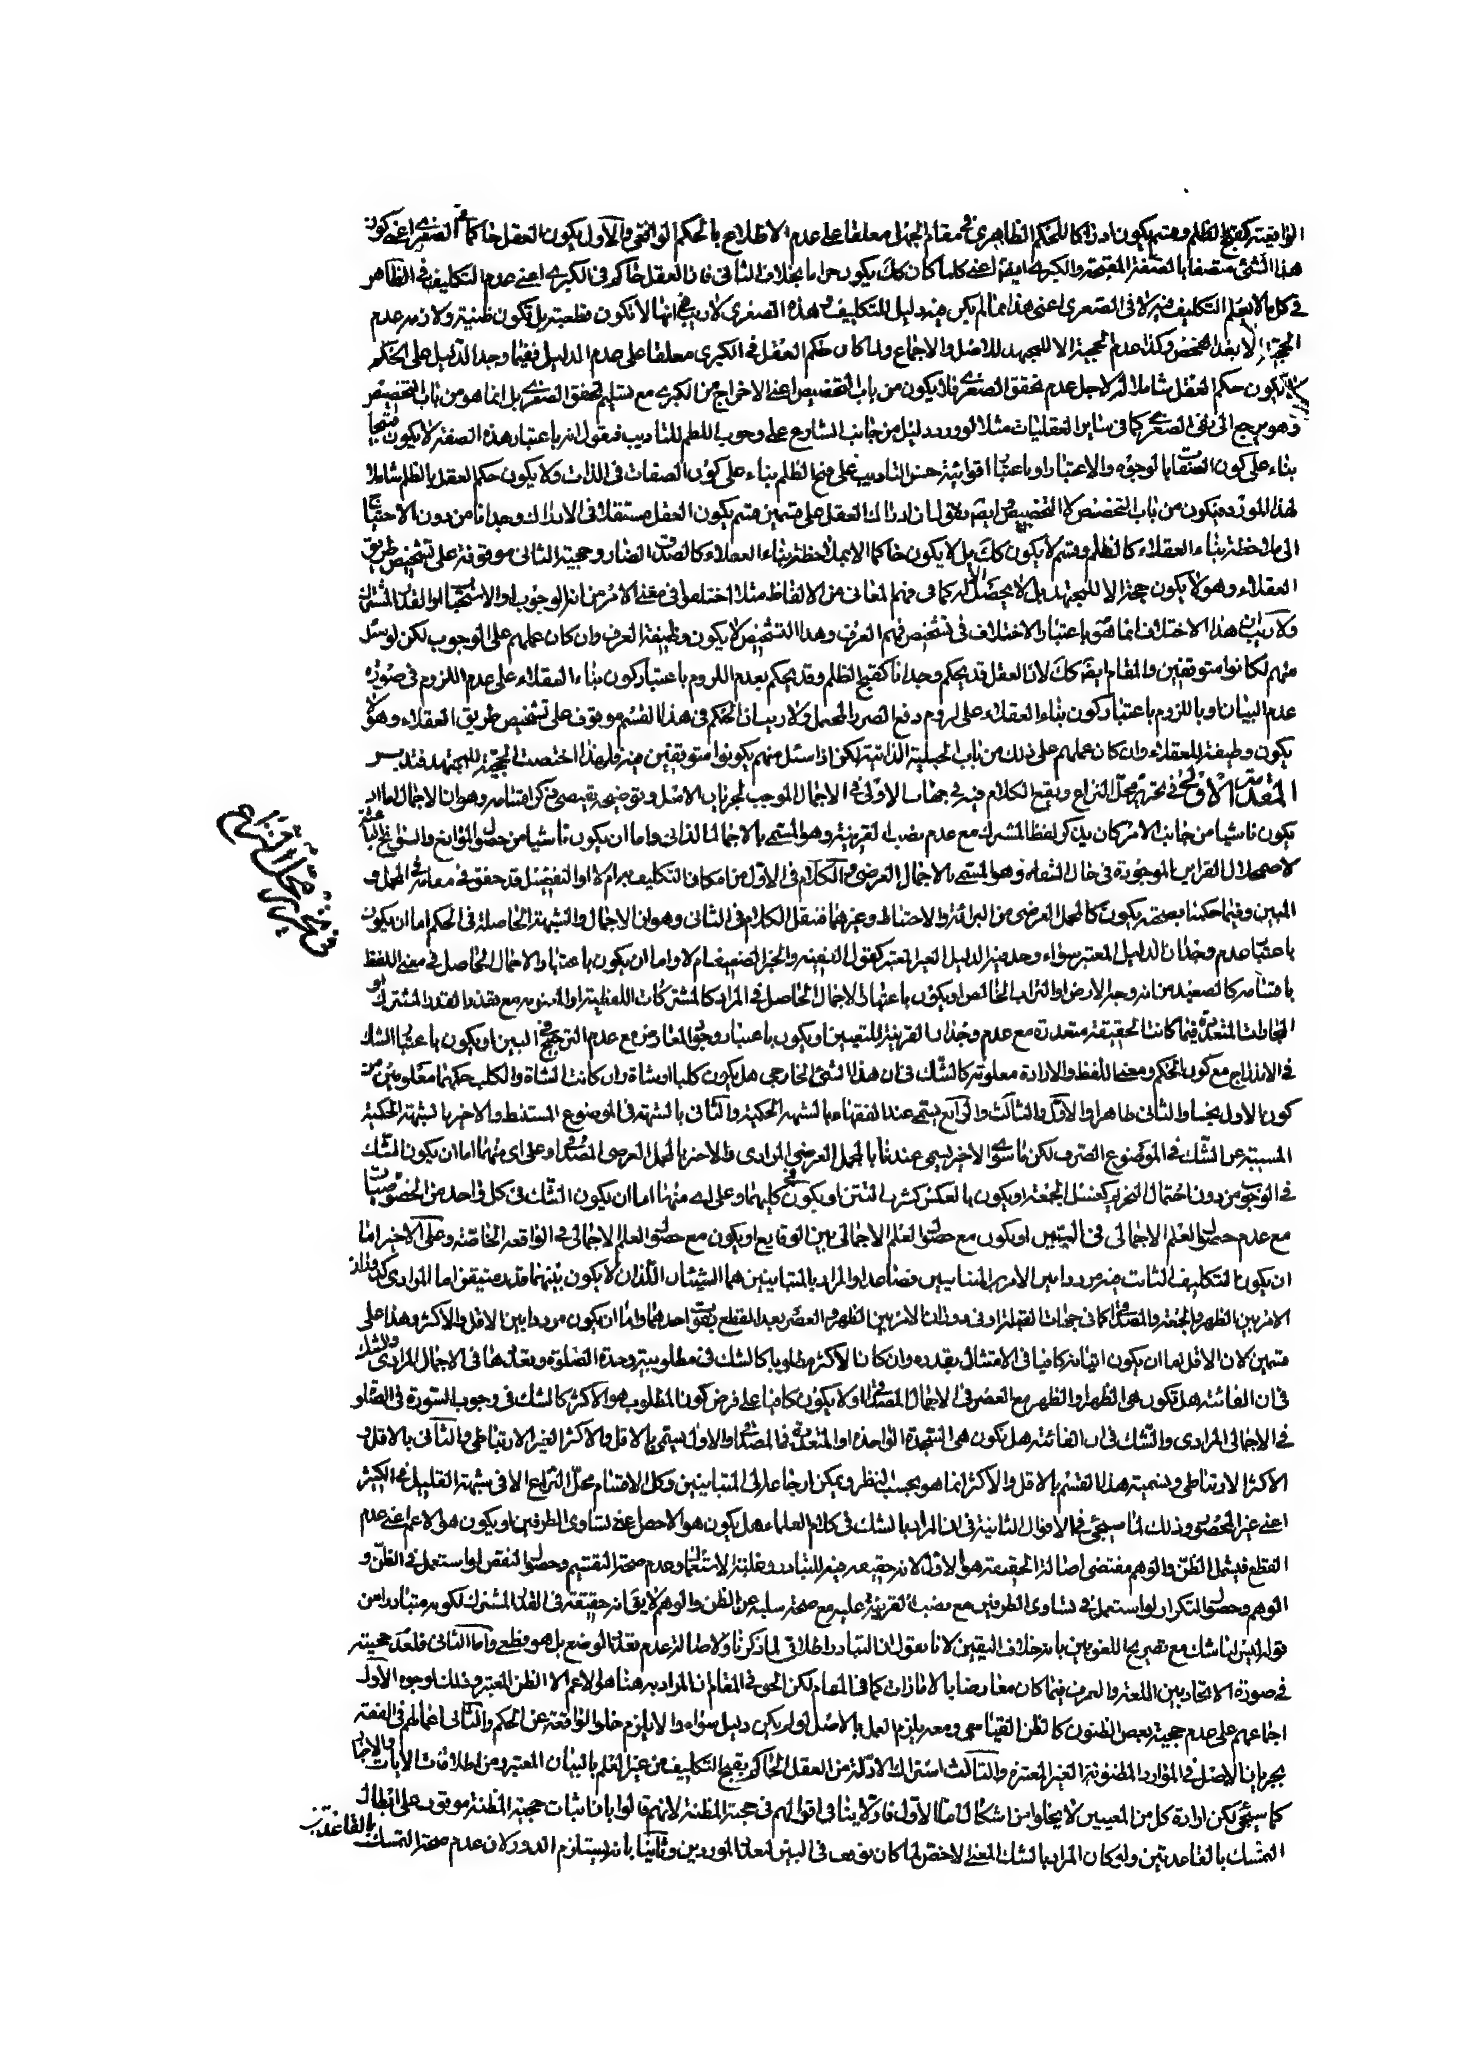 الواقعية كقبح الظلم وقسم يكون ادراكا للحكم الظاهرى فى مقام الجهل معلقا على عدم الاطلاع بالحكم الواقعى والاول يكون العقل حاكما فى الصغرى اعنى كون
هذا الشئ متصفا بالصفة المقبحة والكبرى ايضا اعنى كلما كان كك يكون حراما بخلاف الثانى فان العقل حاكم فى الكبرى اعنى عدم التكليف فى الظاهر
فى كل ما لا يعلم التكليف فيه لا فى الصغرى اعنى هذا مما لم يكن فيه دليل للتكليف وهذه الصغرى لا ريب فى انها لا تكون قطعية بل تكون ظنية ولازمه عدم
الحجية الا بعد الفحص وكذا عدم الحجية الا للمجتهد للاصل والاجماع ولما كان حكم العقل فى الكبرى معلقا على عدم الدليل ففيما وجد الدليل على الحكم
لا يكون حكم العقل شاملا له لاجل عدم تحقق الصغرى فلا يكون من باب التخصيص اعنى الاخراج من الكبرى مع تسليم تحقق الصغرى بل انما هو من باب التخصص
وهو يرجع الى نفى الصغرى كما فى سائر العقليات مثلا لو ورد دليل من جانب الشارع على وجوب اللطم للتاديب فنقول انه باعتبار هذه الصفة لا يكون قبيحا
بناء على كون الصفات بالوجوه والاعتبار او باعتبار اقوائية حسن التاديب على قبح الظلم بناء على كون الصفات فى الذات ولا يكون حكم العقل بالظلم شاملا
لهذا المورد فيكون من باب التخصص لا التخصيص وايضا نقول ان ادراك العقل على قسمين قسم يكون العقل مستقلا فى الادراك وجدانا من دون الاحتياج
الى ملاحظة بناء العقلاء كالظلم وقسم لا يكون كك بل لا يكون حاكما الا بملاحظة بناء العقلاء كالصدق الضار وحجية الثانى موقوفة على تشخيص طريق
العقلاء وهو لا يكون حجة الا للمجتهد بل لا يحصل الا له كما فى فهم المعانى من الالفاظ مثلا اختلفوا فى معنى الامر من انه الوجوب او الاستحباب او القدر المشترك
ولا ريب ان هذا الاختلاف انما هو باعتبار الاختلاف فى تشخيص فهم العرف وهذا التشخيص لا يكون وظيفة العرف وان كان عملهم على الوجوب لكن لو سئل
منهم لكانوا متوقفين والمقام ايضا كك لان العقل قد يحكم وجدانا كقبح الظلم وقد يحكم بعدم اللزوم باعتبار كون بناء العقلاء على عدم اللزوم فى صورة
عدم البيان او باللزوم باعتبار كون بناء العقلاء على لزوم دفع الضرر المحتمل ولا ريب ان الحكم فى هذا القسم موقوف على تشخيص طريق العقلاء وهو لا
يكون وظيفة للعقلاء وان كان عملهم على ذلك من باب الجبلية الذاتية لكن اذا سئل منهم يكونوا متوقفين فيه فلهذا اختصت الحجية للمجتهد فتدبر
المقدمة الاولى فى تحرير محل النزاع ويقع الكلام فيه فى جهات الاولى فى الاجمال الموجب لجريان الاصل وتوضيحه يقتضى ذكر اقسامه وهو ان الاجمال اما ان
يكون ناشيا من جانب الامر كان يذكر لفظا المشترك مع عدم نصب القرينة وهو المسمى بالاجمال الذاتى واما ان يكون ناشيا من حصول الموانع والسوانح الباعثة
لاضمحلال القراين الموجودة فى حال الخطاب وهو المسمى بالاجمال العرضى والكلام فى الاول من امكان التكليف به ام لا او التفصيل قد حقق فى مقامه فى المجمل و
المبين وفيما حكمنا بصحته يكون كالمجمل العرضى من البرائة والاحتياط وغيرهما فننقل الكلام فى الثانى وهو ان الاجمال والشبهة الحاصلة فى الحكم اما ان يكون
باعتبار عدم وجدان الدليل المعتبر سواء وجد فيه الدليل الغير المعتبر كقول الفقيه والخبر الضعيف ام لا واما ان يكون باعتبار الاجمال الحاصل فى معنى اللفظ
باقسامه كالصعيد من انه وجه الارض او التراب الخالص او يكون باعتبار الاجمال الحاصل فى المراد كالمشتركات اللفظية او المعنوية مع فقد القدر المشترك او
المجازات المتعددة فيما كانت الحقيقة متعذرة مع عدم وجدان القرينة للتعيين او يكون باعتبار وجود المعارض مع عدم الترجيح فى البين او يكون باعتبار الشك
فى الاندراج مع كون الحكم ومعنى اللفظ والارادة معلومة كالشك فى ان هذا الشئ الخارجى هل يكون كلبا او شاة وان كانت الشاة والكلب حكمهما معلومين من
كون الاول نجسا والثانى طاهرا والاول والثالث والرابع يسمى عند الفقهاء بالشبهة الحكمية والثانى بالشبهة فى الموضوع المستنبط والاخر بالشبهة الحكمية
المسببة عن الشك فى الموضوع الصرف لكن ما سوى الاخير يسمى عندنا بالمجمل العرضى المرادى والاخر بالمجمل العرضى المصداقى وعلى اى منهما اما ان يكون الشك
فى الوجوب من دون احتمال التحريم كغسل الجمعة او يكون بالعكس كشرب التتن او يكون فى كليهما وعلى اى منها اما ان يكون الشك فى كل واحد من الخصوصيات
مع عدم حصول العلم الاجمالى فى البين او يكون مع حصول العلم الاجمالى بين الوقايع او يكون مع حصول العلم الاجمالى فى الواقعة الخاصة وعلى الاخير اما
ان يكون التكليف الثابت فيه مرددا بين الامرين المتباينين فصاعدا والمراد بالمتباينين هما الشيئان اللذان لا يكون بينهما قدر متيقن اما المرادى كدوران
الامر بين الظهر والجمعة والمصداقى كما فى جهات القبلة او فى دوران الامر بين الظهر والعصر بعد القطع بفوت احدهما واما ان يكون مرددا بين الاقل والاكثر وهذا على
قسمين لان الاقل اما ان يكون اتيانه كافيا فى الامتثال بقدره وان كان الاكثر مطلوبا كالشك فى مطلوبية وحدة الصلوة وتعددها فى الاجمال المرادى والشك
فى ان الفائتة هل تكون هى الظهر او الظهر مع العصر فى الاجمال المصداقى او لا يكون كافيا على فرض كون المطلوب هو الاكثر كالشك فى وجوب السورة فى الصلوة
فى الاجمالى المرادى والشك فى ان الفائتة هل تكون هى السجدة الواحدة او المتعددة فى المصداقى والاول يسمى بالاقل والاكثر الغير الارتباطى والثانى بالاقل و
الاكثر الارتباطى وتسمية هذا القسم بالاقل والاكثر انما هو بحسب النظر ويمكن ارجاعه الى المتباينين وكل الاقسام محل النزاع الا فى شبهة القليل فى الكثير
اعنى غير المحصور وذلك لما سيجئ فى الاقوال الثانية فى ان المراد بالشك فى كلام العلماء هل يكون هو الاخص اعنى تساوى الطرفين او يكون هو الاعم اعنى عدم
القطع فيشمل الظن والوهم مقتضى اصالة الحقيقة هو الاول لانه حقيقة فيه للتبادر وغلبة الاستعمال وعدم صحة التقسيم وحصول التنقض لو استعمل فى الظن و
الوهم وحصول التكرار لو استعمل فى تساوى الطرفين مع نصب القرينة عليه مع صحة سلبه عن الظن والوهم لا يقال انه حقيقة فى القدر المشترك لكونه متبادرا من
قوله ليس لنا شك مع تصريح اللغويين بانه خلاف اليقين لانا نقول ان التبادر اطلاقى لما ذكرنا ولاصالة عدم تعدد الوضع بل هو قطعى واما الثانى فلعدم حجيته
فى صورة الاتحاد بين اللغة والعرف فيما كان معارضا بالامارات كما فى المقام لكن الحق فى المقام ان المراد به هنا هو الاعم الا الظن المعتبر وذلك لوجوه الاول
اجماعهم على عدم حجية بعض الظنون كالظن القياسى ومعه يلزم العمل بالاصل لو لم يكن دليل سواه والا يلزم خلو الواقعة عن الحكم والثانى اعمالهم فى الفقه
بجريان الاصل فى الموارد المظنونة الغير المعتبرة والثالث اشتراك الادلة من العقل الحاكم بقبح التكليف من غير العلم بالبيان المعتبر ومن اطلاقات الايات والاخبار
كما سيجئ لكن ارادة كل من المعنيين لا يخلو من اشكال اما الاول فاولا ينافى اقوالهم فى حجية المظنة لانهم قالوا بان اثبات حجية المظنة موقوف على ابطال
التمسك بالقاعدتين ولو كان المراد بالشك المعنى الاخص لما كان توقف فى البين لتعدد الموردين وثانيا بانه يستلزم الدور لان عدم صحة التمسك بالقاعدتين
فى تحرير محل النزاع